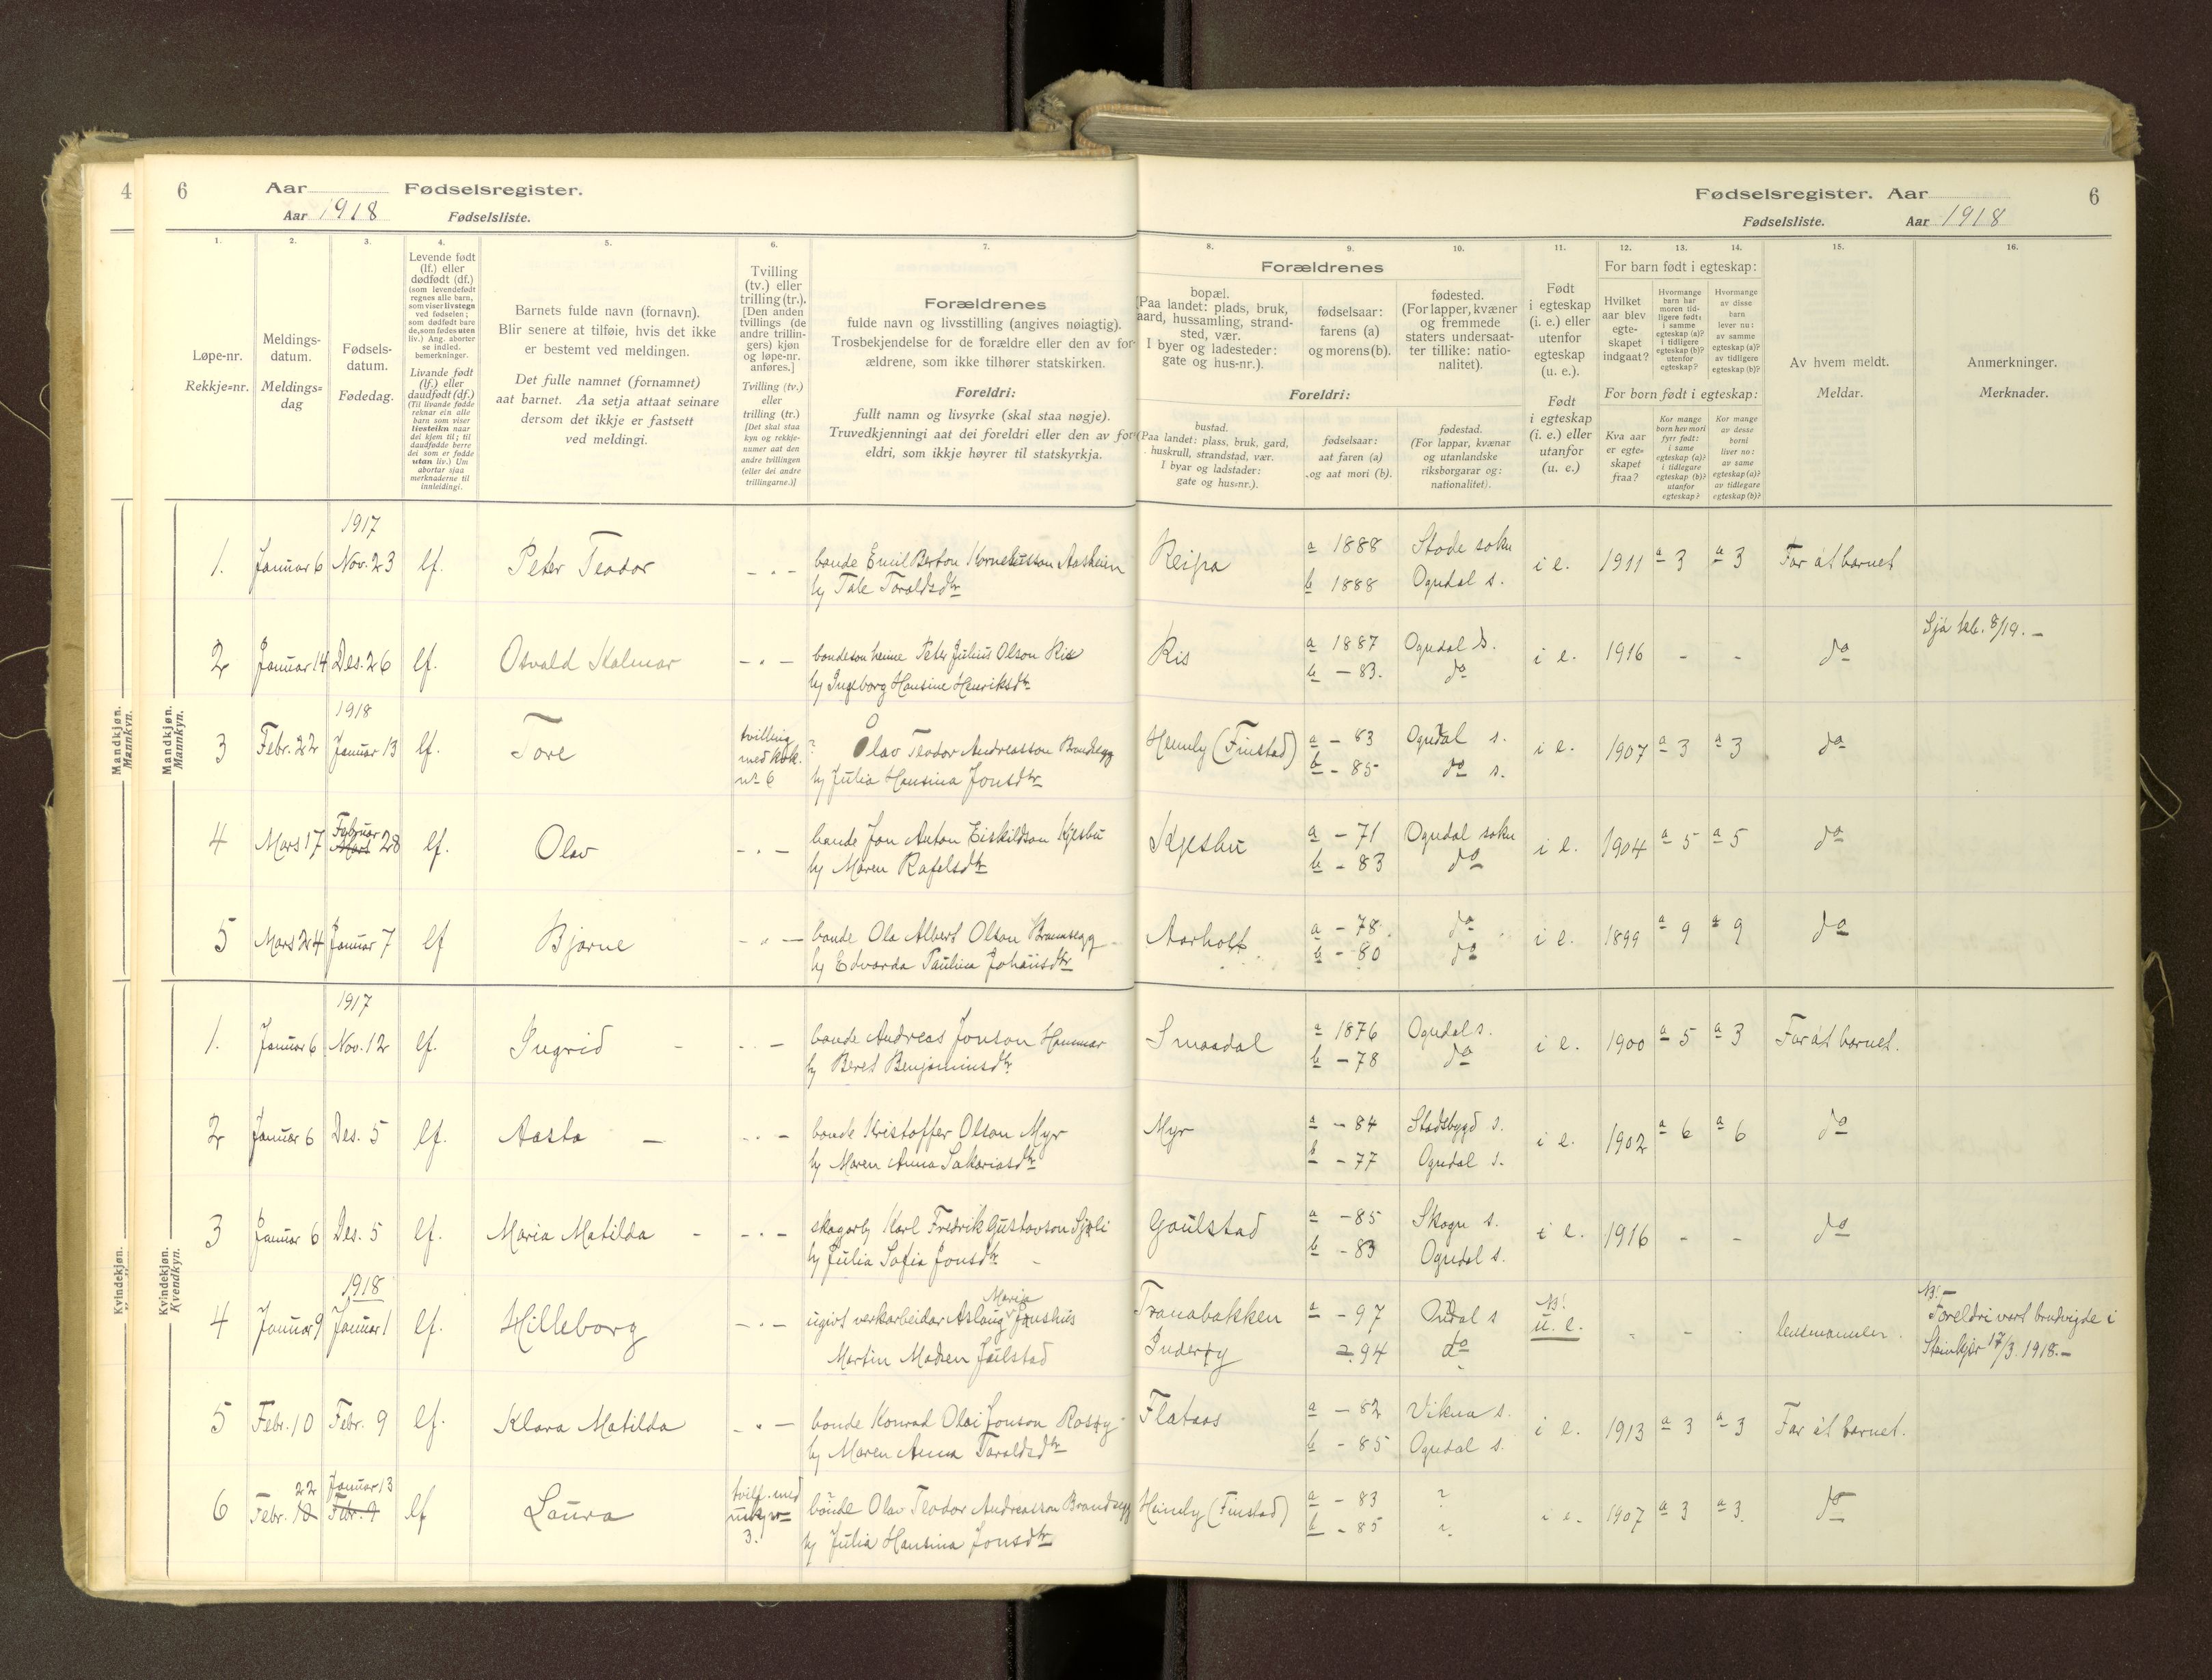 4
6 Aar Fødselsregister.
Aar 1918 Fødselsliste.
Fødselsregister. Aar 6
Fødselsliste. Aar 1918
1. 2. 3. 4. 5. 6. 7.
Løpe-nr.
Rekkje=nr.
Meldings-
datum.
Meldings=
dag
Fødsels-
datum.
Fødedag.
Levende født
(lf.) eller
dødfødt (df.)
(som levendefødt
regnes alle barn,
som viser livstegn
ved fødselen;
som dødfødt bare
de, som fødes uten
liv.) Ang. aborter
se indled.
bemerkninger.
Livande født
(lf.) eller
daudfødt (df.)
(Til livande fødde
reknar ein alle
barn som viser
livsteikn naar
dei kjem til; til
daudfødde berre
dei som er fødde
utan liv.) Um
abortar sjaa
merknaderne til
innleidingi.
Barnets fulde navn (fornavn).
Blir senere at tilføie, hvis det ikke
er bestemt ved meldingen.
Det fulle namnet (fornamnet)
aat barnet. Aa setja attaat seinare
dersom det ikkje er fastsett
ved meldingi.
Tvilling
(tv.) eller
trilling (tr.).
[Den anden
tvillings (de
andre trillin-
gers) kjøn
og løpe-nr.
anføres.]
Tvilling (tv.)
eller
trilling (tr.)
[Det skal staa
kyn og rekkje-
numer aat den
andre tvillingen
(eller dei andre
trillingarne.)]
Forældrenes
fulde navn og livsstilling (angives nøiagtig).
Trosbekjendelse for de forældre eller den av for-
ældrene, som ikke tilhører statskirken.
Foreldri:
fullt namn og livsyrke (skal staa nøgje).
Truvedkjenningi aat dei foreldri eller den av for-
eldri, som ikkje høyrer til statskyrkja.
8. 9. 10. 11. 12. 13. 14. 15. 16.
Forældrenes
bopæl.
(Paa landet: plads, bruk,
gaard, hussamling, strand-
sted, vær.
I byer og ladesteder:
gate og hus-nr.).
fødselsaar:
farens (a)
og morens (b).
fødested.
(For lapper, kvæner
og fremmede
staters undersaat-
ter tillike: natio-
nalitet).
Foreldri:
bustad.
(Paa landet: plass, bruk, gard,
huskrull, strandstad, vær.
I byar og ladstader:
gate og hus=nr.).
fødselsaar:
aat faren (a)
og aat mori (b).
fødestad.
(For lappar, kvænar
og utanlandske
riksborgarar og:
nationalitet).
Født
i egteskap
(i. e.) eller
utenfor
egteskap
(u. e.).
Født
i egteskap
(i. e.) eller
utanfor
(u. e.)
For barn født i egteskap:
Hvilket
aar blev
egte-
skapet
indgaat?
Hvormange
barn har
moren tid-
ligere født:
i samme
egteskap (a)?
i tidligere
egteskap (b)?
utenfor
egteskap?
Hvormange
av disse
barn
lever nu:
av samme
egteskap (a)?
av tidligere
egteskap (b)?
For born født i egteskap:
Kva aar
er egte-
skapet
fraa?
Kor mange
born hev mori
fyrr født:
i same
egteskap (a)?
i tidlegare
egteskap (b)?
utanfor
egteskap?
Kor mange
av desse
borni
liver no:
av same
egteskap (a)?
av tidlegare
egteskap (b)?
Av hvem meldt.
Meldar.
Anmerkninger.
Merknader.
Mandkjøn.
Mannkyn.
1917
1. Januar 6 Nov. 23 lf. Peter Teodor - " - bonde Emil Berton Korneliusson Aasheim Reipa a 1888 Stode sokn i e. 1911 a 3 a 3 Far åt barnet
hy Tale Taraldsdtr b 1888 Ogndal s.
2 Januar 14 Des. 26 lf. Osvald Kalmar - " - bondeson heime Peter Julius Olson Ris Ris a 1887 Ogndal s. i e. 1916 - - do Sjå kb. 8/19. -
hy Ingeborg Hansine Henriksdtr b - 83. do
1918
3 Febr. 22 Januar 13 lf. Tore tvilling med kvk. nr 6 ? Olav Teodor Andreasson Brandsegg Heimly (Finstad) a - 83 Ogndal s. i e. 1907 a 3 a 3 do
hy Julia Hansina Jonsdtr b - 85 do s.
4 Mars 17 Februar Mars 28 lf. Olav - " - bonde Jon Anton Eiskildson Kjesbu Kjesbu a - 71 Ogndal sokn i e. 1904 a 5 a 5 do
hy Maren Rafelsdtr b - 83 do
5 Mars 24 Januar 7 lf Bjarne - " - bonde Ola Albert Olson Brannsegg Aarholt a - 78. do i e. 1899 a 9 a 9 do
hy Edvarda Paulina Johansdtr b - 80 do
Kvindekjøn.
Kvendkyn.
1917
1. Januar 6 Nov. 12 lf. Ingrid - - " - bonde Andreas Jonson Hammar Smaadal a 1876 Ogndal s. i e. 1900 a 5 a 3 Far åt barnet.
hy Beret Benjaminsdtr b - 78 do
2 Januar 6 Des. 5 lf. Aasta - - " - bonde Kristoffer Olson Myr Myr a - 84 Stadsbygd s. i e. 1902 a 6 a 6 do
hy Maren Anna Sakariasdtr b - 77 Ogndal s.
3 Januar 6 Des. 5 lf. Maria Matilda - - " - skogarb. Karl Fredrik Gustavson Sjøli Gaulstad a - 85 Skogn s. i e. 1916 - - do
hy Julia Sofia Jonsdtr b - 83 Ogndal s.
1918
4 Januar 9 Januar 1 lf. Hilleborg - " - ugivt verkarbeidar Aslaug Maria Jønshus Tranabakken a - 97 Ogndal s NB! u. e. - - - lensmannen. NB! - Foreldri vart brudvigde i
Martin Madsen Julstad Inderøy 94 do Steinkjer 17/3 1918. -
5 Febr. 10 Febr. 9 lf. Klara Matilda - " - bonde Konrad Olai Jonson Rosøy Flataas a - 82 Vikna s. i e. 1913 a 3 a 3 Far åt barnet.
hy Maren Anna Taraldsdtr b - 85 Ogndal s.
6 Febr. 22 Januar 13 Febr. 9 lf Laura tvill. med mk nr 3. bonde Olav Teodor Andreasson Brandsegg Heimly (Finstad) a - 83 ? i e. 1907 a 3 a 3. do
hy Julia Hansina Jonsdtr b - 85